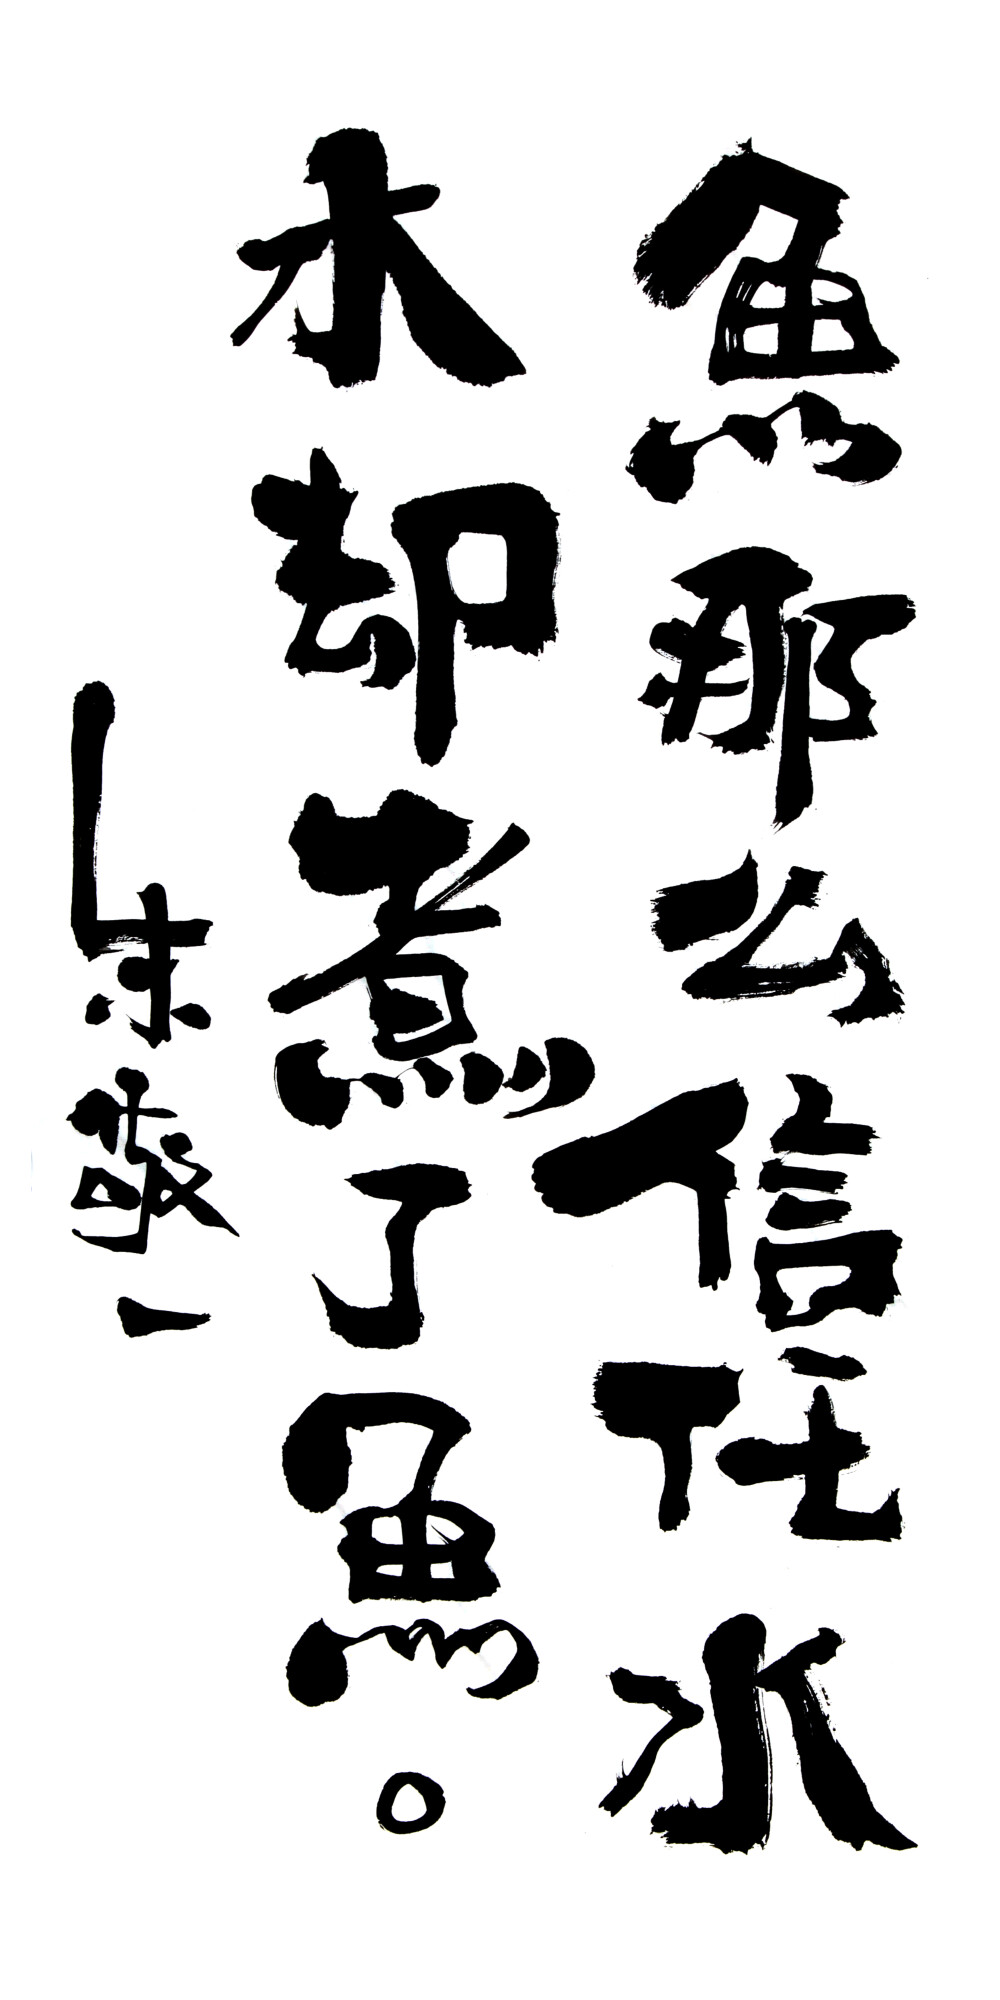 魚那么信任水
水却煮了魚。
朱敬一